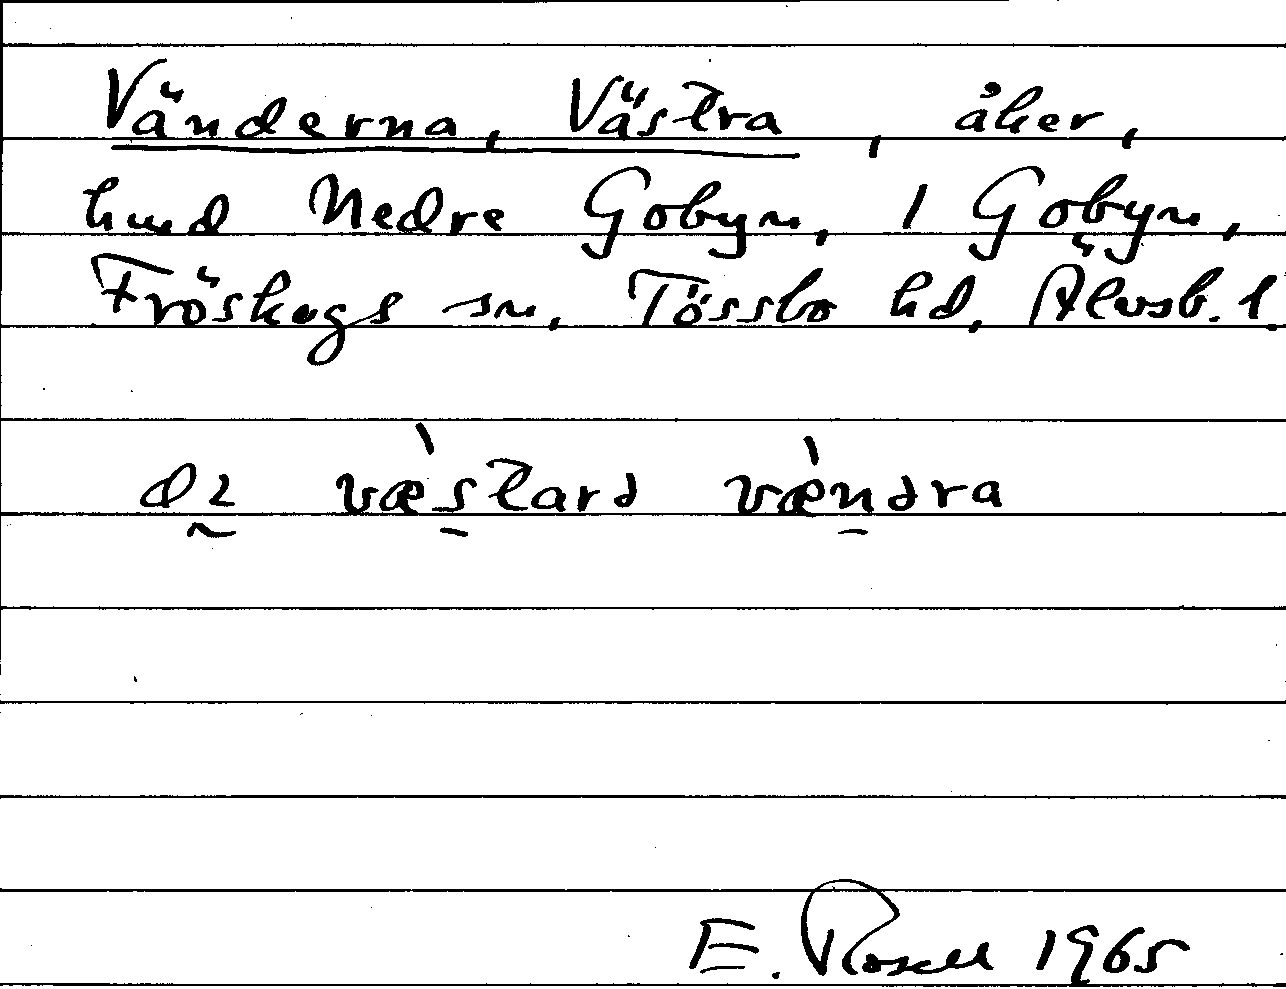 Vänderna, Västra, åker,
hmd Nedre Gobyn, 1 Gobyn,
Fröskogs sn, Tössbo hd, Älvsb. l.
væ̀starə væ̀nəra
E. Rosell 1965